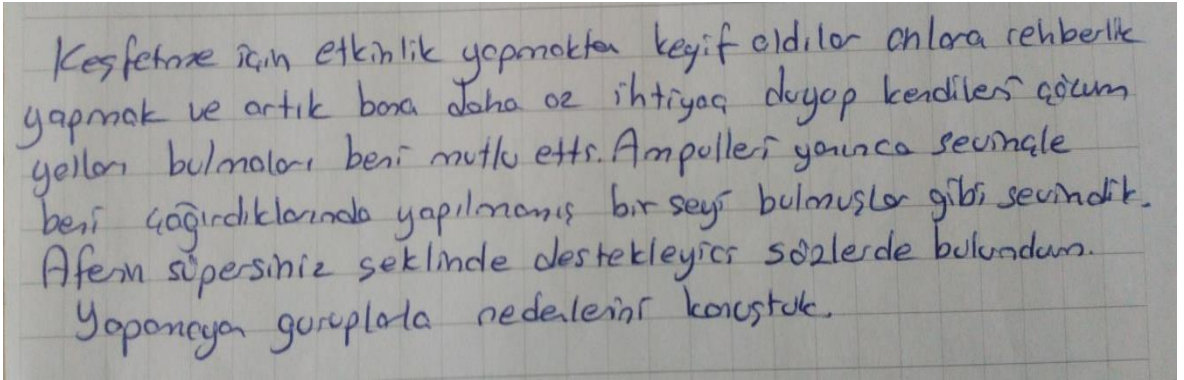 Keşfetme için etkinlik yapmaktan keyif aldılar onlara rehberlik
yapmak ve artık bana daha az ihtiyaç duyup kendileri çözüm
yolları bulmaları beni mutlu etti. Ampulleri yanınca sevinçle
beni çağırdıklarında yapılmamış bir şeyi bulmuşlar gibi sevindik.
Aferin süpersiniz şeklinde destekleyici sözlerde bulundum.
Yapamayan guruplarla nedenlerini konuştuk.